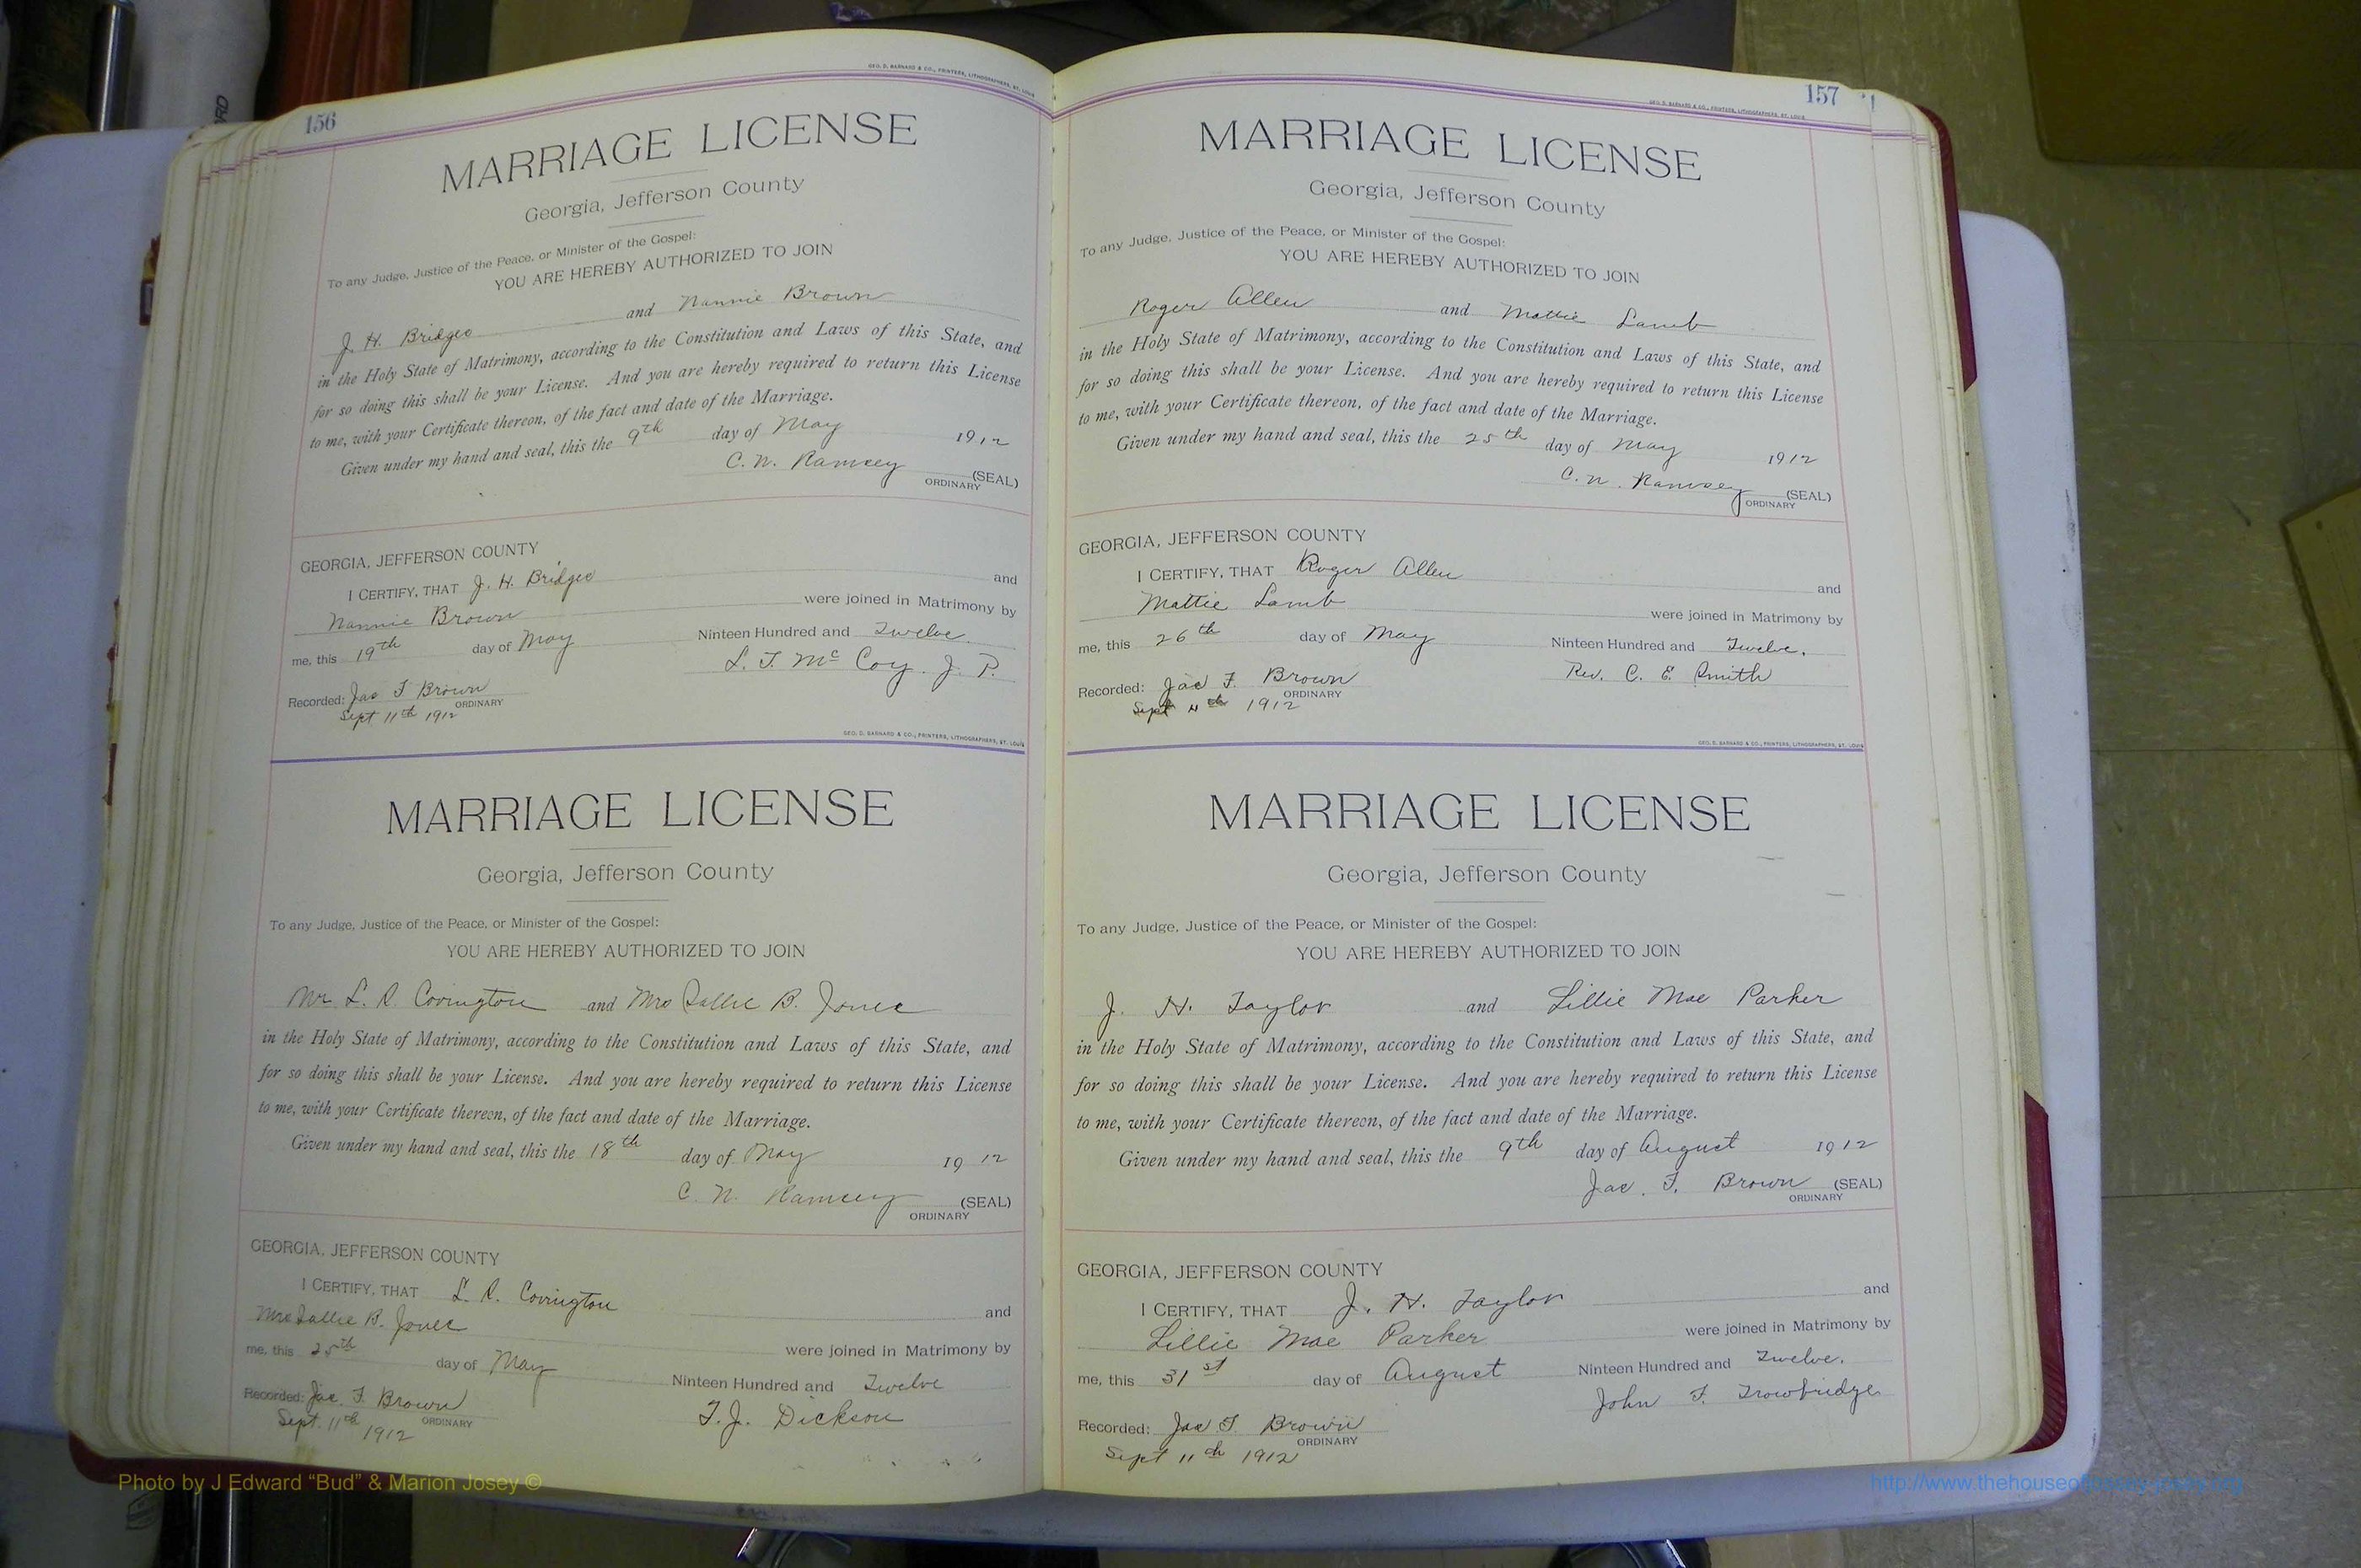 156
GEO. D. BARNARD & CO., PRINTERS, LITHOGRAPHERS, ST. LOUIS
MARRIAGE LICENSE
Georgia, Jefferson County
To any Judge, Justice of the Peace, or Minister of the Gospel:
YOU ARE HEREBY AUTHORIZED TO JOIN
J. H. Bridges and Nannie Brown
in the Holy State of Matrimony, according to the Constitution and Laws of this State, and
for so doing this shall be your License. And you are hereby required to return this License
to me, with your Certificate thereon, of the fact and date of the Marriage.
Given under my hand and seal, this the 9th day of May 1912
C. N. Ramsey (SEAL)
ORDINARY
GEORGIA, JEFFERSON COUNTY
I CERTIFY, THAT J. H. Bridges and
Nannie Brown were joined in Matrimony by
me, this 19th day of May Ninteen Hundred and Twelve
L. T. McCoy. J. P.
Recorded: Jas F Brown
ORDINARY
Sept 11th 1912
GEO. D. BARNARD & CO., PRINTERS, LITHOGRAPHERS, ST. LOUIS
MARRIAGE LICENSE
Georgia, Jefferson County
To any Judge, Justice of the Peace, or Minister of the Gospel:
YOU ARE HEREBY AUTHORIZED TO JOIN
Mr. L. R. Covington and Mrs Sallie B. Jones
in the Holy State of Matrimony, according to the Constitution and Laws of this State, and
for so doing this shall be your License. And you are hereby required to return this License
to me, with your Certificate thereon, of the fact and date of the Marriage.
Given under my hand and seal, this the 18th day of May 1912
C. N. Ramsey (SEAL)
ORDINARY
GEORGIA, JEFFERSON COUNTY
I CERTIFY, THAT L. R. Covington and
Mrs Sallie B. Jones were joined in Matrimony by
me, this 25th day of May Ninteen Hundred and Twelve
T. J. Dickson
Recorded: Jas. F. Brown
ORDINARY
Sept. 11th 1912
157
GEO. D. BARNARD & CO., PRINTERS, LITHOGRAPHERS, ST. LOUIS
MARRIAGE LICENSE
Georgia, Jefferson County
To any Judge, Justice of the Peace, or Minister of the Gospel:
YOU ARE HEREBY AUTHORIZED TO JOIN
Roger Allen and Mattie Lamb
in the Holy State of Matrimony, according to the Constitution and Laws of this State, and
for so doing this shall be your License. And you are hereby required to return this License
to me, with your Certificate thereon, of the fact and date of the Marriage.
Given under my hand and seal, this the 25th day of May 1912
C. N. Ramsey (SEAL)
ORDINARY
GEORGIA, JEFFERSON COUNTY
I CERTIFY, THAT Roger Allen and
Mattie Lamb were joined in Matrimony by
me, this 26th day of May Ninteen Hundred and Twelve.
Rev. C. E. Smith
Recorded: Jas F. Brown
ORDINARY
Sept 11th 1912
GEO. D. BARNARD & CO., PRINTERS, LITHOGRAPHERS, ST. LOUIS
MARRIAGE LICENSE
Georgia, Jefferson County
To any Judge, Justice of the Peace, or Minister of the Gospel:
YOU ARE HEREBY AUTHORIZED TO JOIN
J. H. Taylor and Lillie Mae Parker
in the Holy State of Matrimony, according to the Constitution and Laws of this State, and
for so doing this shall be your License. And you are hereby required to return this License
to me, with your Certificate thereon, of the fact and date of the Marriage.
Given under my hand and seal, this the 9th day of August 1912
Jas. F. Brown (SEAL)
ORDINARY
GEORGIA, JEFFERSON COUNTY
I CERTIFY, THAT J. H. Taylor and
Lillie Mae Parker were joined in Matrimony by
me, this 31st day of August Ninteen Hundred and Twelve.
John F. Trowbridge
Recorded: Jas F. Brown
ORDINARY
Sept 11th 1912
Photo by J Edward “Bud” & Marion Josey ©
http://www.thehouseofjossey-josey.org